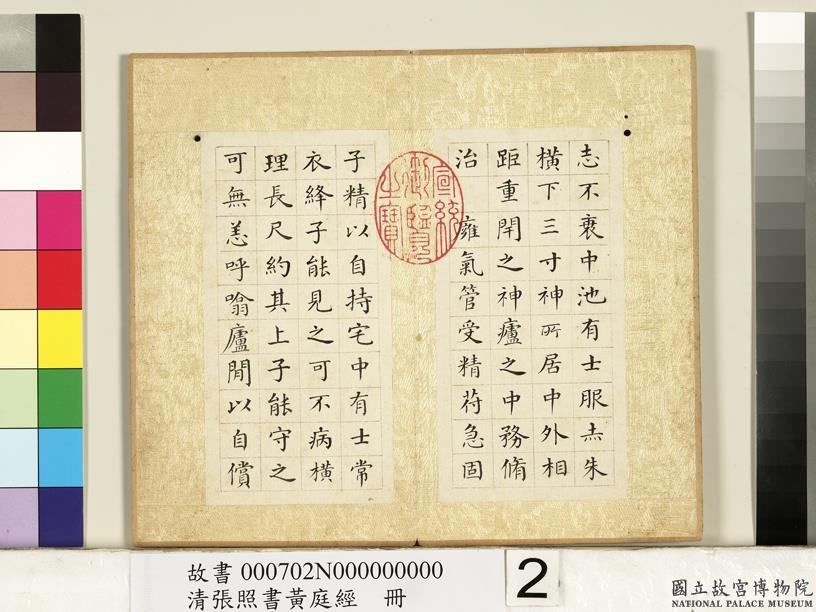 志不衰中池有士服赤朱
橫下三寸神所居中外相
距重閇之神廬之中務脩
治雍氣管受精苻急固
子精以自持宅中有士常
衣絳子能見之可不病橫
理長尺約其上子能守之
可無恙呼噏廬間以自償
宣統御覽之寶
故書 000702N000000000
清張照書黃庭經 冊
2
國立故宮博物院
NATIONAL PALACE MUSEUM